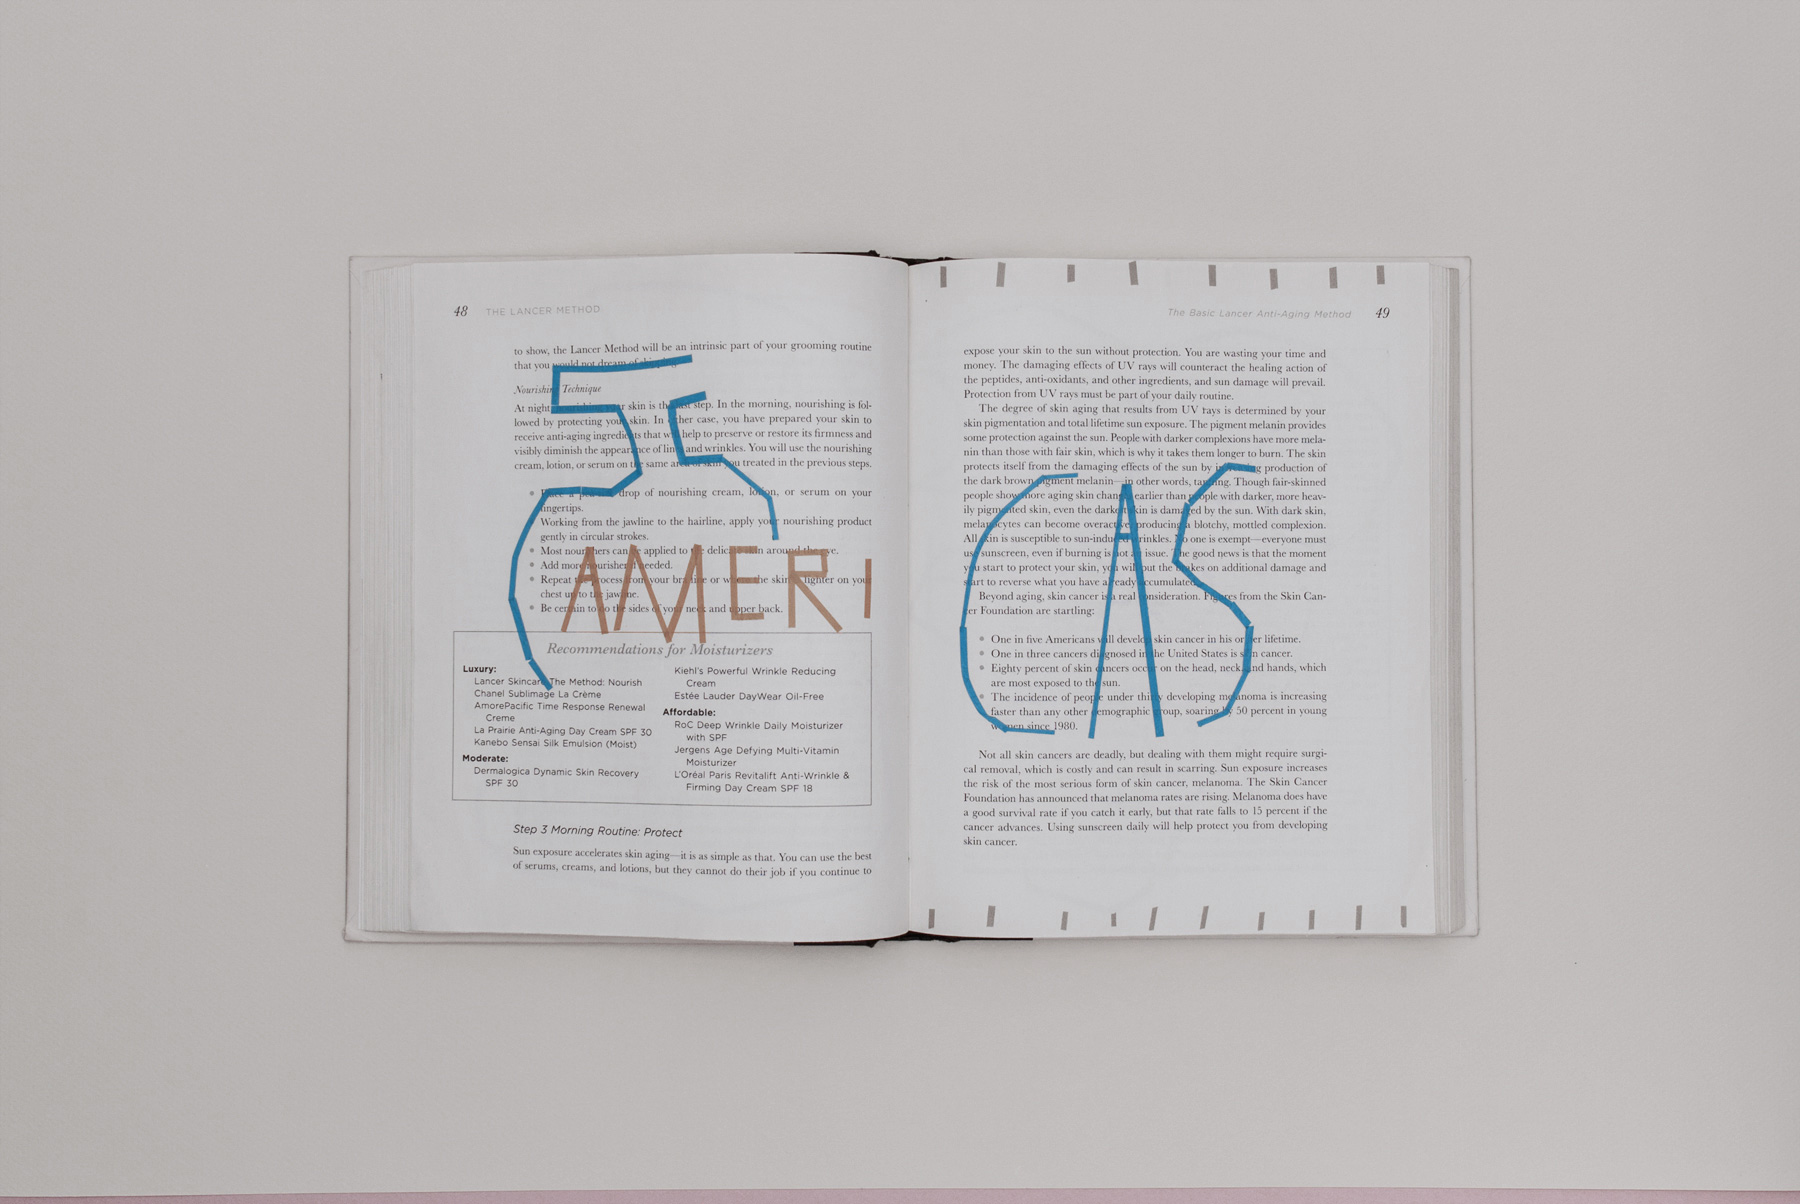 48 THE LANCER METHOD
to show, the Lancer Method will be an intrinsic part of your grooming routine
that you would not dream of skipping.
Nourishing Technique
At night, nourishing your skin is the last step. In the morning, nourishing is fol-
lowed by protecting your skin. In either case, you have prepared your skin to
receive anti-aging ingredients that will help to preserve or restore its firmness and
visibly diminish the appearance of lines and wrinkles. You will use the nourishing
cream, lotion, or serum on the same area of skin you treated in the previous steps.
• Place a drop of nourishing cream, lotion, or serum on your
fingertips.
Working from the jawline to the hairline, apply your nourishing product
gently in circular strokes.
• Most nourishers can be applied to the delicate skin around the eye.
• Add more nourisher if needed.
• Repeat the process from your bra line or where the skin is lighter on your
chest up to the jawline.
• Be certain to do the sides of your neck and upper back.
5C
AMERI
Recommendations for Moisturizers
Luxury:
Lancer Skincare The Method: Nourish
Chanel Sublimage La Crème
AmorePacific Time Response Renewal
Creme
La Prairie Anti-Aging Day Cream SPF 30
Kanebo Sensai Silk Emulsion (Moist)
Moderate:
Dermalogica Dynamic Skin Recovery
SPF 30
Kiehl's Powerful Wrinkle Reducing
Cream
Estée Lauder DayWear Oil-Free
Affordable:
RoC Deep Wrinkle Daily Moisturizer
with SPF
Jergens Age Defying Multi-Vitamin
Moisturizer
L'Oréal Paris Revitalift Anti-Wrinkle &
Firming Day Cream SPF 18
Step 3 Morning Routine: Protect
Sun exposure accelerates skin aging—it is as simple as that. You can use the best
of serums, creams, and lotions, but they cannot do their job if you continue to
The Basic Lancer Anti-Aging Method 49
expose your skin to the sun without protection. You are wasting your time and
money. The damaging effects of UV rays will counteract the healing action of
the peptides, anti-oxidants, and other ingredients, and sun damage will prevail.
Protection from UV rays must be part of your daily routine.
The degree of skin aging that results from UV rays is determined by your
skin pigmentation and total lifetime sun exposure. The pigment melanin provides
some protection against the sun. People with darker complexions have more mela-
nin than those with fair skin, which is why it takes them longer to burn. The skin
protects itself from the damaging effects of the sun by increasing production of
the dark brown pigment melanin—in other words, tanning. Though fair-skinned
people show more aging skin changes earlier than people with darker, more heav-
ily pigmented skin, even the darkest skin is damaged by the sun. With dark skin,
melanocytes can become overactive, producing a blotchy, mottled complexion.
All skin is susceptible to sun-induced wrinkles. No one is exempt—everyone must
use sunscreen, even if burning is not an issue. The good news is that the moment
you start to protect your skin, you will put the brakes on additional damage and
start to reverse what you have already accumulated.
Beyond aging, skin cancer is a real consideration. Figures from the Skin Can-
cer Foundation are startling:
• One in five Americans will develop skin cancer in his or her lifetime.
• One in three cancers diagnosed in the United States is skin cancer.
• Eighty percent of skin cancers occur on the head, neck, and hands, which
are most exposed to the sun.
• The incidence of people under thirty developing melanoma is increasing
faster than any other demographic group, soaring by 50 percent in young
women since 1980.
CAS
Not all skin cancers are deadly, but dealing with them might require surgi-
cal removal, which is costly and can result in scarring. Sun exposure increases
the risk of the most serious form of skin cancer, melanoma. The Skin Cancer
Foundation has announced that melanoma rates are rising. Melanoma does have
a good survival rate if you catch it early, but that rate falls to 15 percent if the
cancer advances. Using sunscreen daily will help protect you from developing
skin cancer.